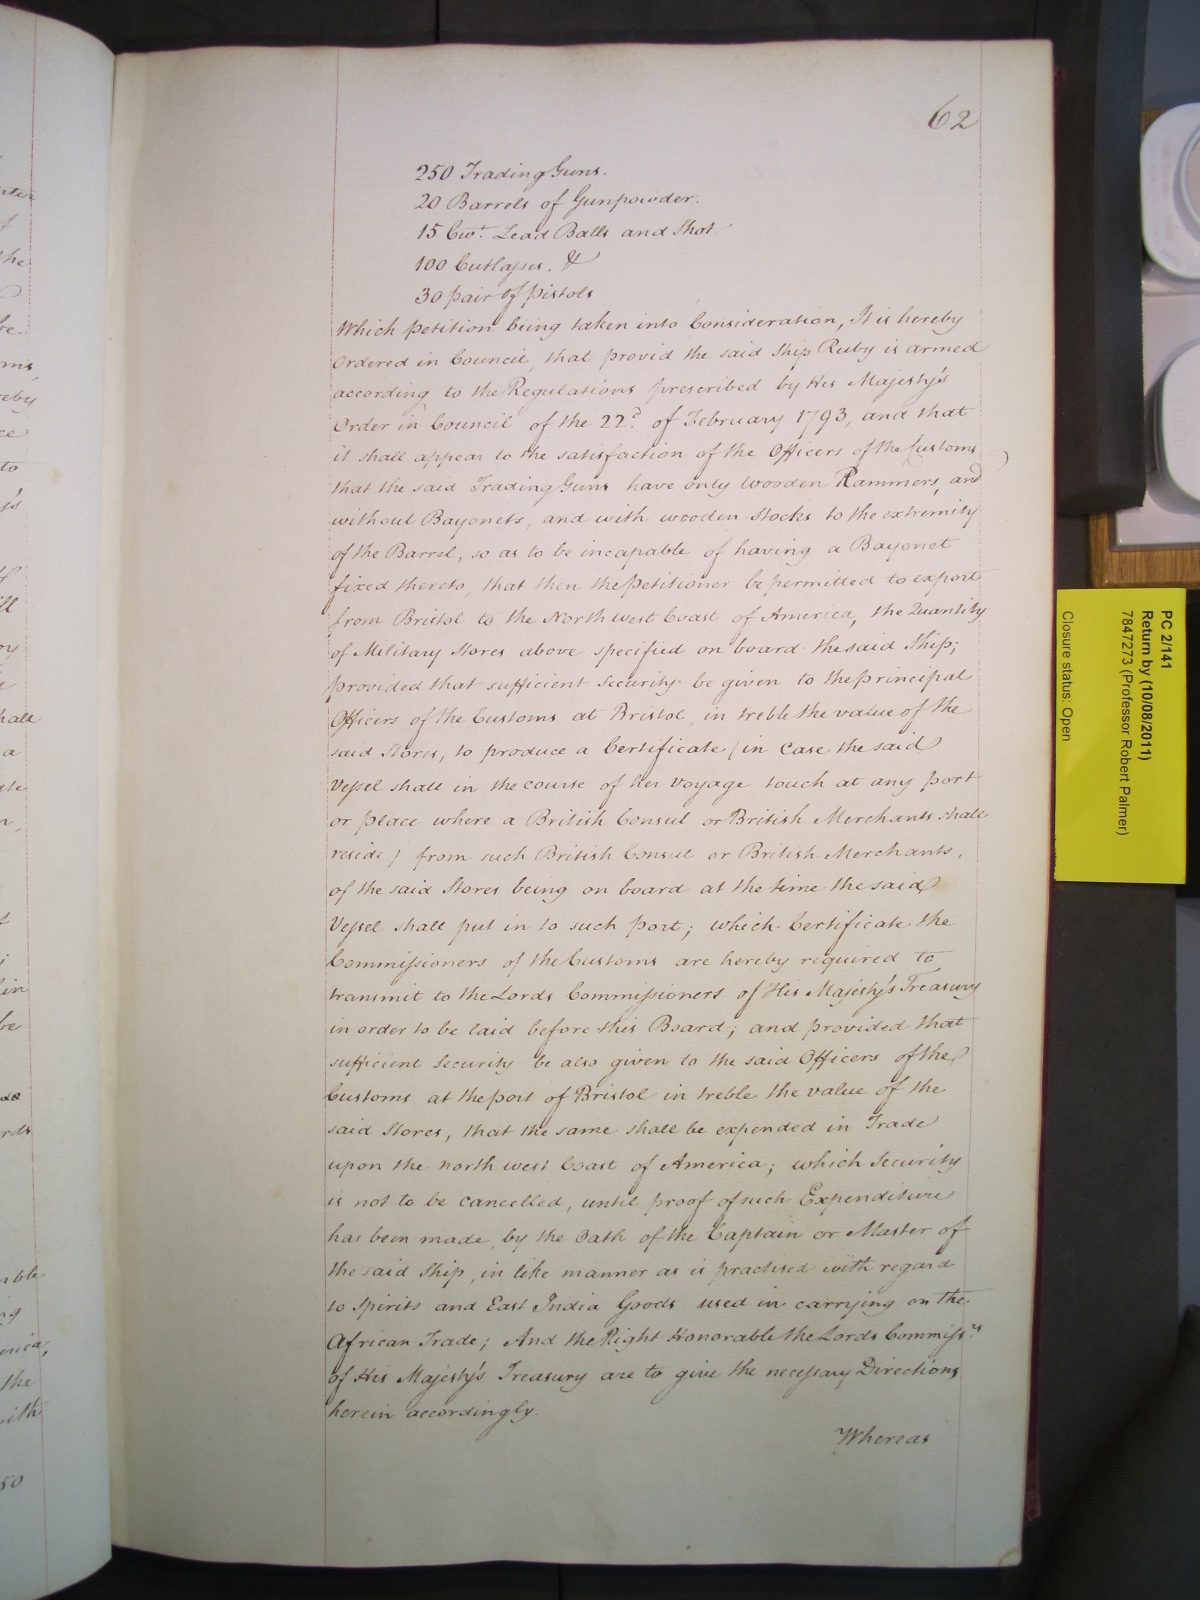 62
250 Trading Guns.
20 Barrels of Gunpowder.
15 Cwt. Lead Balls and Shot.
100 Cutlasses. &
30 pair of pistols
Which petition being taken into Consideration, It is hereby
Ordered in Council, that provid the said Ship Ruby is armed
according to the Regulations prescribed by His Majesty's
Order in Council of the 22d. of February 1793, and that
it shall appear to the satisfaction of the Officers of the Customs
that the said Trading Guns have only wooden Rammers, and
without Bayonets, and with wooden Stocks to the extremity
of the Barrel, so as to be incapable of having a Bayonet
fixed thereto, that then the Petitioner be permitted to export
from Bristol to the North west Coast of America, the Quantity
of Military Stores above specified on board the said Ship;
provided that sufficient Security be given to the principal
Officers of the Customs at Bristol, in treble the value of the
said Stores, to produce a Certificate (in Case the said
Vessel shall in the course of her voyage touch at any port
or place where a British Consul or British Merchants shall
reside) from such British Consul or British Merchants,
of the said Stores being on board at the time the said
Vessel shall put in to such port; which Certificate the
Commissioners of the Customs are hereby required to
transmit to the Lords Commissioners of His Majesty's Treasury
in order to be laid before this Board; and provided that
sufficient Security be also given to the said Officers of the
Customs at the port of Bristol in treble the value of the
said Stores, that the same shall be expended in Trade
upon the north west Coast of America; which Security
is not to be cancelled, until proof of such Expenditure
has been made, by the Oath of the Captain or Master of
the said Ship, in like manner as is practised with regard
to Spirits and East India Goods used in carrying on the
African Trade; And the Right Honorable the Lords Commissrs
of His Majesty's Treasury are to give the necessary Directions
herein accordingly.
Whereas
PC 2/141
Return by (10/08/2011)
7847273 (Professor Robert Palmer)
Closure status: Open